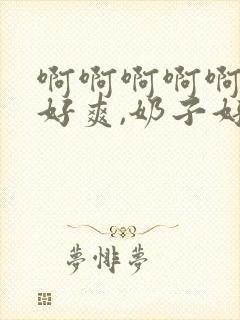 啊啊啊啊啊
好爽,奶子好
梦悱梦